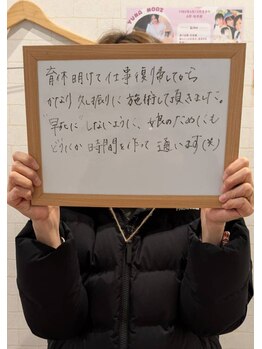 YUNA MOGI
育休明けて仕事復帰してから
かなり久し振りに施術して頂きました。
"早死に"しないように、娘のためにも
どうにか時間を作って通います(笑)